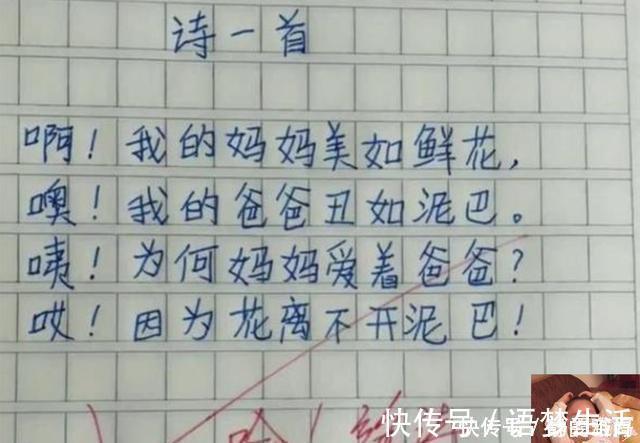 诗一首
啊！我的妈妈美如鲜花，
噢！我的爸爸丑如泥巴。
咦！为何妈妈爱着爸爸？
哎！因为花离不开泥巴！
快传号/语梦生活